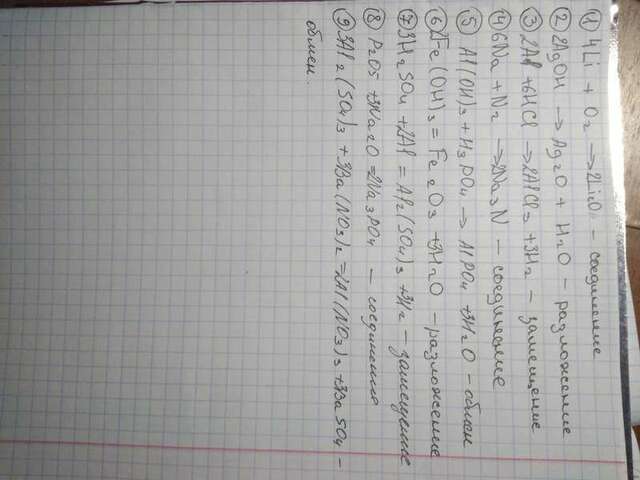 ① 4Li + O2 → 2Li2O - соединение
② 2AgOH → Ag2O + H2O - разложение
③ 2Al + 6HCl → 2AlCl3 + 3H2 - замещение
④ 6Na + N2 → 2Na3N - соединение
⑤ Al(OH)3 + H3PO4 → AlPO4 + 3H2O - обмен
⑥ 2Fe(OH)3 = Fe2O3 + 3H2O - разложение
⑦ 3H2SO4 + 2Al = Al2(SO4)3 + 3H2 - замещение
⑧ P2O5 + 3Na2O = 2Na3PO4 - соединение
⑨ Al2(SO4)3 + 3Ba(NO3)2 = 2Al(NO3)3 + 3BaSO4 -
обмен.